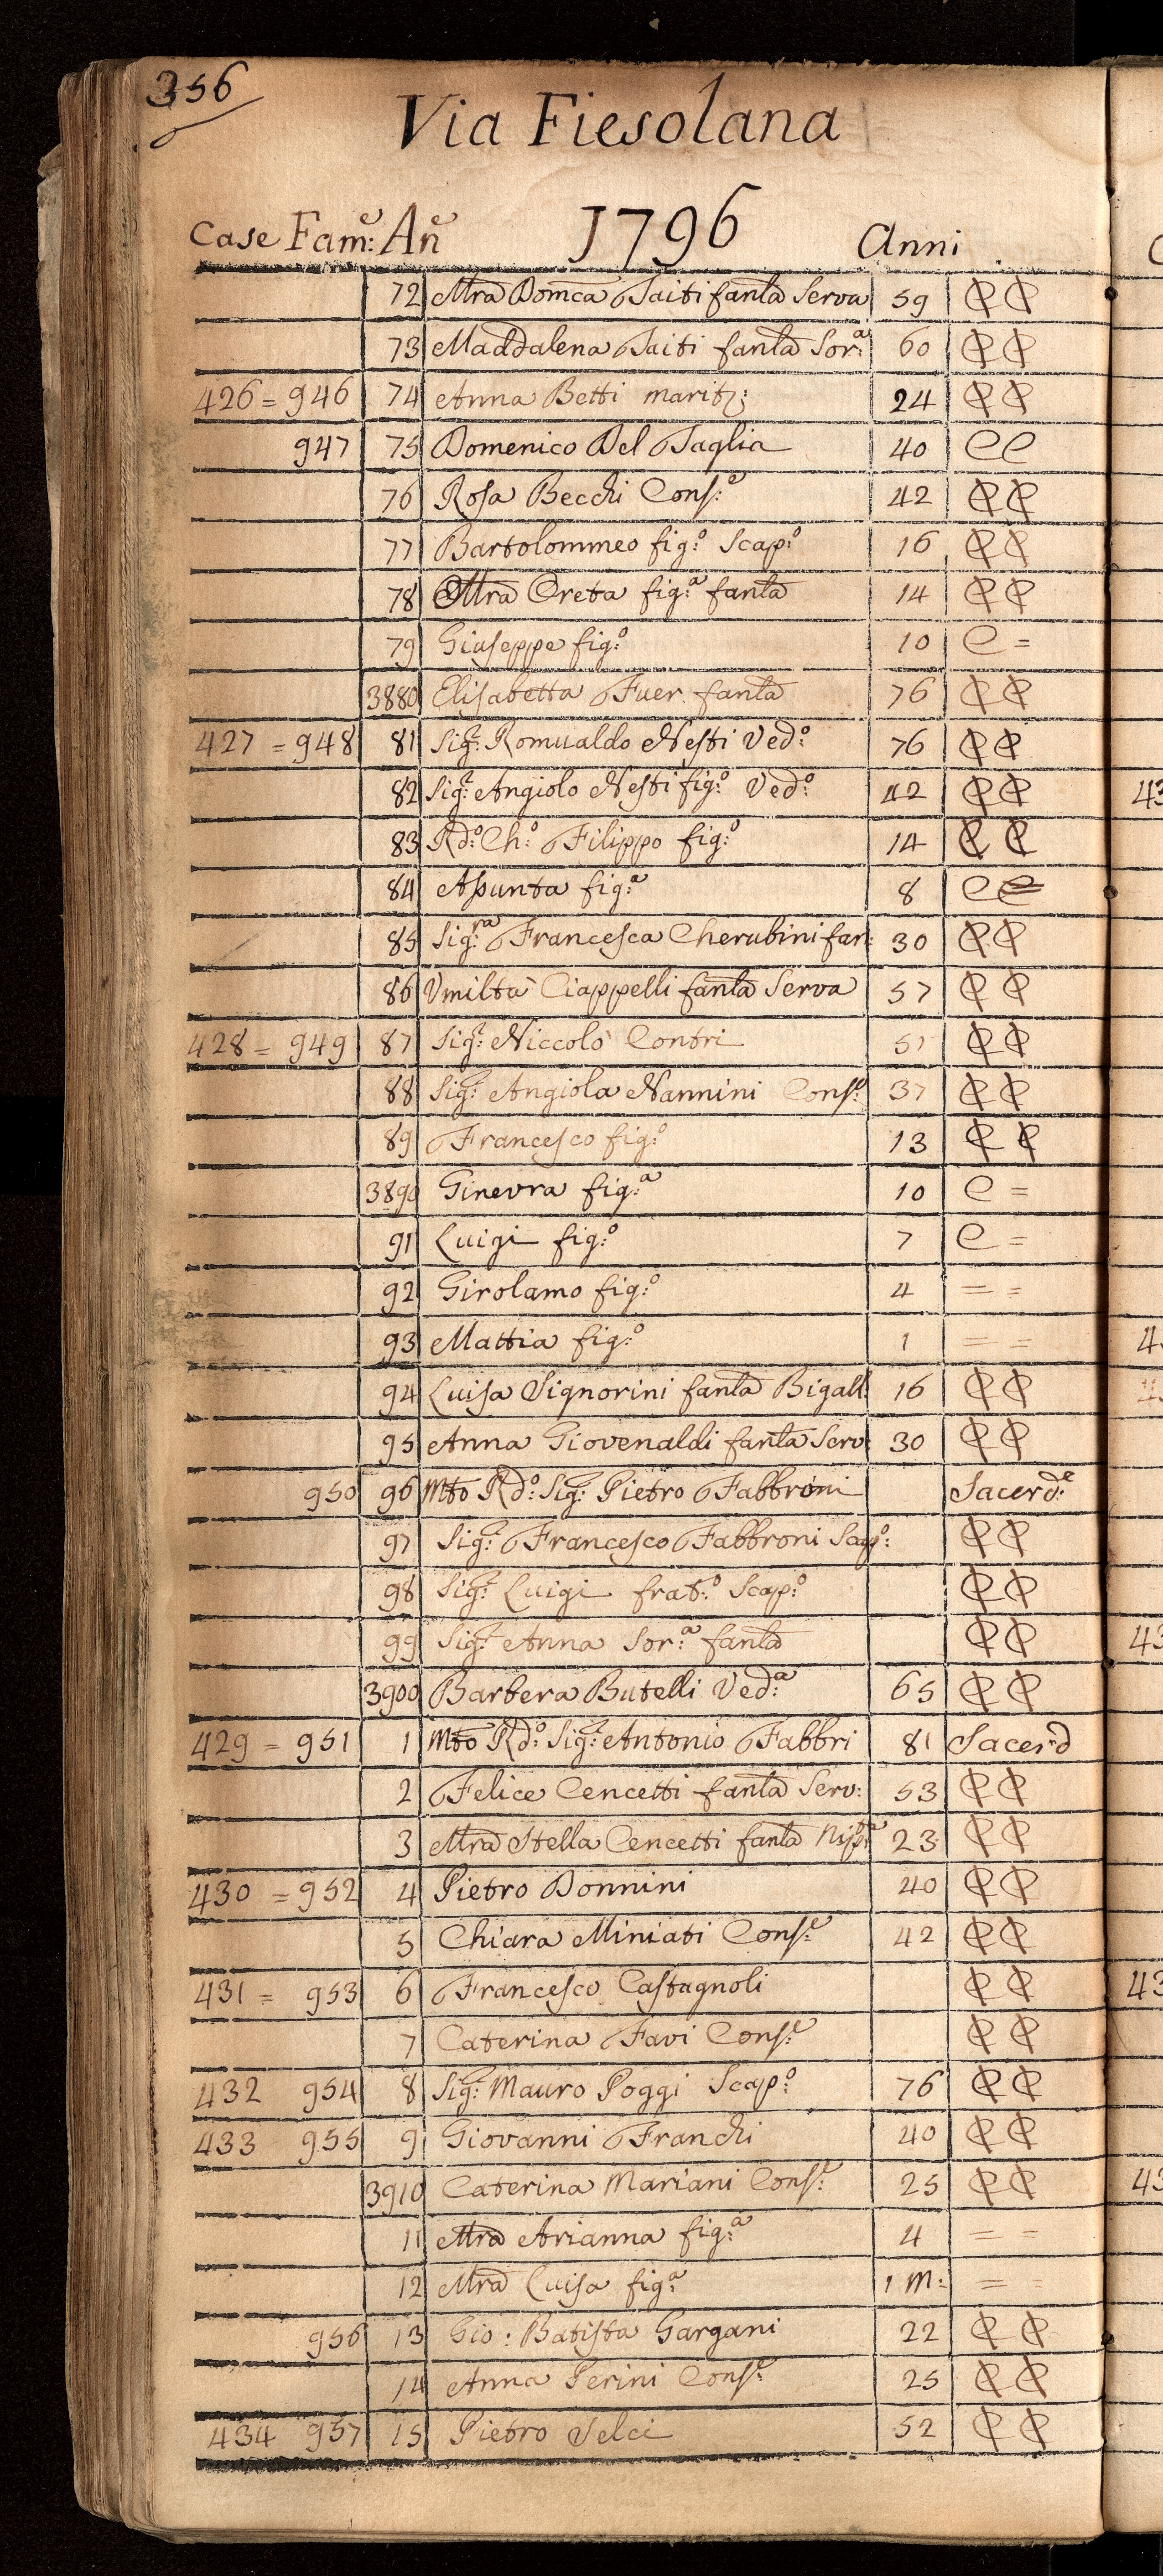 356
Via Fiesolana
Case Fam:e An̄e 1796 Anni
72 Mr̄a Domc̄a Taiti fanl̄a Serva 59 ꟼ ꟼ
73 Maddalena Taiti fanl̄a Sor:a 60
426 = 946 74 Anna Betti marit: 24
947 75 Domenico Del Taglia 40 C C
76 Rosa Becchi Cons:e 42
77 Bartolommeo fig:o Scap:o 16
78 Mr̄a Creta fig:a fanl̄a 14
79 Giuseppe fig:o 10 C =
3880 Elisabetta Fuer fanl̄a 76
427 = 948 81 Sig:r Romualdo Nesti Ved:o 76
82 Sig:r Angiolo Nesti fig:o Ved:o 42
83 Rd:o Ch:o Filippo fig:o 14
84 Assunta fig:a 8 C
85 Sig:ra Francesca Cherubini fan: 30
86 Vmiltà Ciappelli fanl̄a Serva 57
428 = 949 87 Sig:r Niccolò Contri 51
88 Sig:r Angiola Nannini Cons:e 37
89 Francesco fig:o 13
3890 Ginevra fig:a 10 C =
91 Luigi fig:o 7 C =
92 Girolamo fig:o 4 = =
93 Mattia fig:o 1 = =
94 Luisa Signorini fanl̄a Bigall: 16
95 Anna Giovenaldi fanl̄a Serv: 30
950 96 Mto Rd:o Sig:r Pietro Fabbroni Sacerd:e
97 Sig:r Francesco Fabbroni Scap:o
98 Sig:r Luigi frat:o Scap:o
99 Sig:r Anna Sor:a fanl̄a
3900 Barbera Butelli Ved:a 65
429 = 951 1 Mto Rd:o Sig:r Antonio Fabbri 81 Sacerd
2 Felice Cencetti fanl̄a Serv: 53
3 Mr̄a Stella Cencetti fanl̄a Nip:a 23
430 = 952 4 Pietro Donnini 40
5 Chiara Miniati Cons:e 42
431 = 953 6 Francesco Castagnoli
7 Caterina Favi Cons:e
432 954 8 Sig:r Mauro Poggi Scap:o 76
433 955 9 Giovanni Franchi 40
3910 Caterina Mariani Cons:e 25
11 Mr̄a Arianna fig:a 4 = =
12 Mr̄a Luisa fig:a 1 M: = =
956 13 Gio: Batista Gargani 22
14 Anna Perini Cons:e 25
434 957 15 Pietro Selci 52